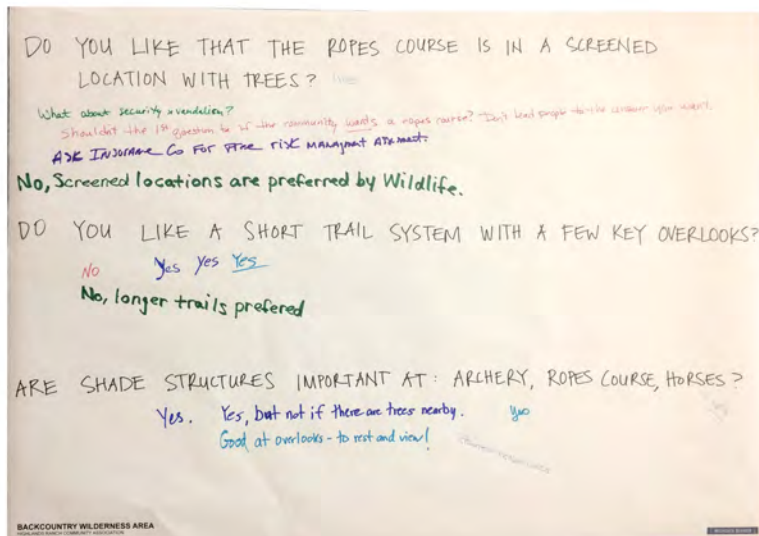 DO YOU LIKE THAT THE ROPES COURSE IS IN A SCREENED
LOCATION WITH TREES?
What about security & vandalism?
Shouldn't the 1st question be if the community wants a ropes course? Don't lead people to the answer you want.
ASK INSURANCE CO FOR RISK
No, Screened locations are preferred by Wildlife.
DO YOU LIKE A SHORT TRAIL SYSTEM WITH A FEW KEY OVERLOOKS?
NO Yes Yes Yes
No, longer trails prefered
ARE SHADE STRUCTURES IMPORTANT AT: ARCHERY, ROPES COURSE, HORSES?
Yes. Yes, but not if there are trees nearby. Yes
Good at overlooks - to rest and view!
BACKCOUNTRY WILDERNESS AREA
HIGHLANDS RANCH COMMUNITY ASSOCIATION